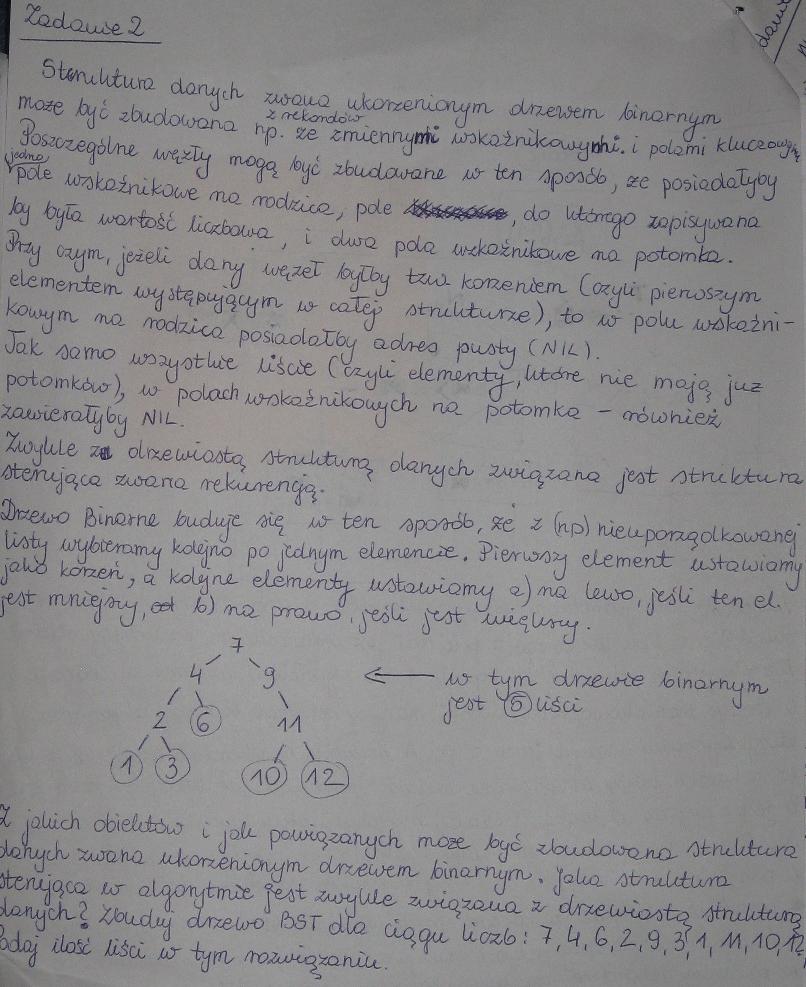 Zadanie 2
danie
Struktura danych zwana ukorzenionym drzewem binarnym
może być zbudowana np. z rekordów ze zmiennymi wskaźnikowymi i polami kluczowymi.
Poszczególne węzły mogą być zbudowane w ten sposób, że posiadałyby
jedno pole wskaźnikowe na rodzica, pole, do którego zapisywana
by była wartość liczbowa, i dwa pola wskaźnikowe na potomka.
Przy czym, jeżeli dany węzeł byłby tzw korzeniem (czyli pierwszym
elementem występującym w całej strukturze), to w polu wskaźni-
kowym na rodzica posiadałby adres pusty (NIL).
Tak samo wszystkie liście (czyli elementy, które nie mają już
potomków), w polach wskaźnikowych na potomka – również
zawierałyby NIL.
Zwykle z drzewiastą strukturą danych związana jest struktura
sterująca zwana rekurencją.
Drzewo Binarne buduje się w ten sposób, że z (np) nieuporządkowanej
listy wybieramy kolejno po jednym elemencie. Pierwszy element ustawiamy
jako korzeń, a kolejne elementy ustawiamy a) na lewo, jeśli ten el.
jest mniejszy, b) na prawo, jeśli jest większy.
7
4 9
2 6 11
1 3 10 12
← w tym drzewie binarnym
jest 5 liści
Z jakich obiektów i jak powiązanych może być zbudowana struktura
danych zwana ukorzenionym drzewem binarnym. Jaka struktura
sterująca w algorytmie jest zwykle związana z drzewiastą strukturą
danych? Zbuduj drzewo BST dla ciągu liczb: 7, 4, 6, 2, 9, 3, 1, 11, 10, 12,
Podaj ilość liści w tym rozwiązaniu.